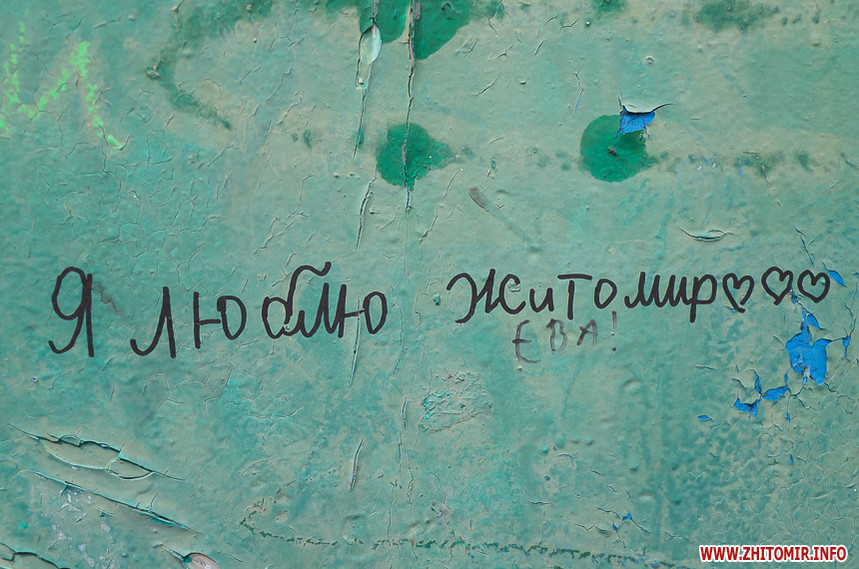 Я люблю Житомир♡♡♡
ЄВА!
WWW.ZHITOMIR.INFO